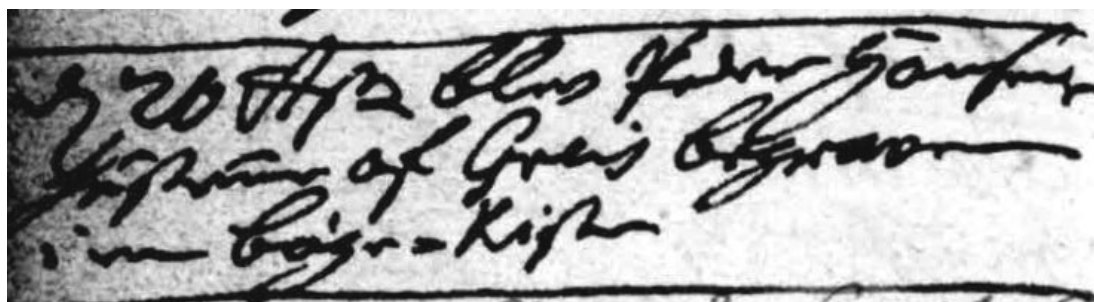 20 blev Peder Hansens
Hustrue af Greis begraven
i en bøge-Kiste